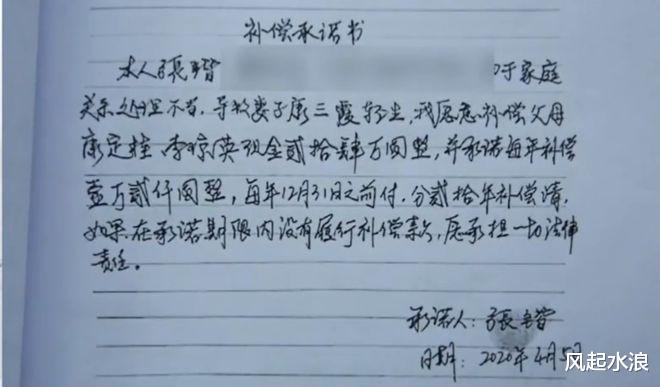 补偿承诺书
本人張 于家庭
关系处理不当，导致妻子康三霞轻生，我愿意补偿父母
康定柱 李琼英现金贰拾肆万圆整，并承诺每年补偿
壹万贰仟圆整，每年12月31日之前付，分贰拾年补偿清，
如果在承诺期限内没有履行补偿款，愿承担一切法律
责任。
承诺人：張
日期：2020年4月5
风起水浪